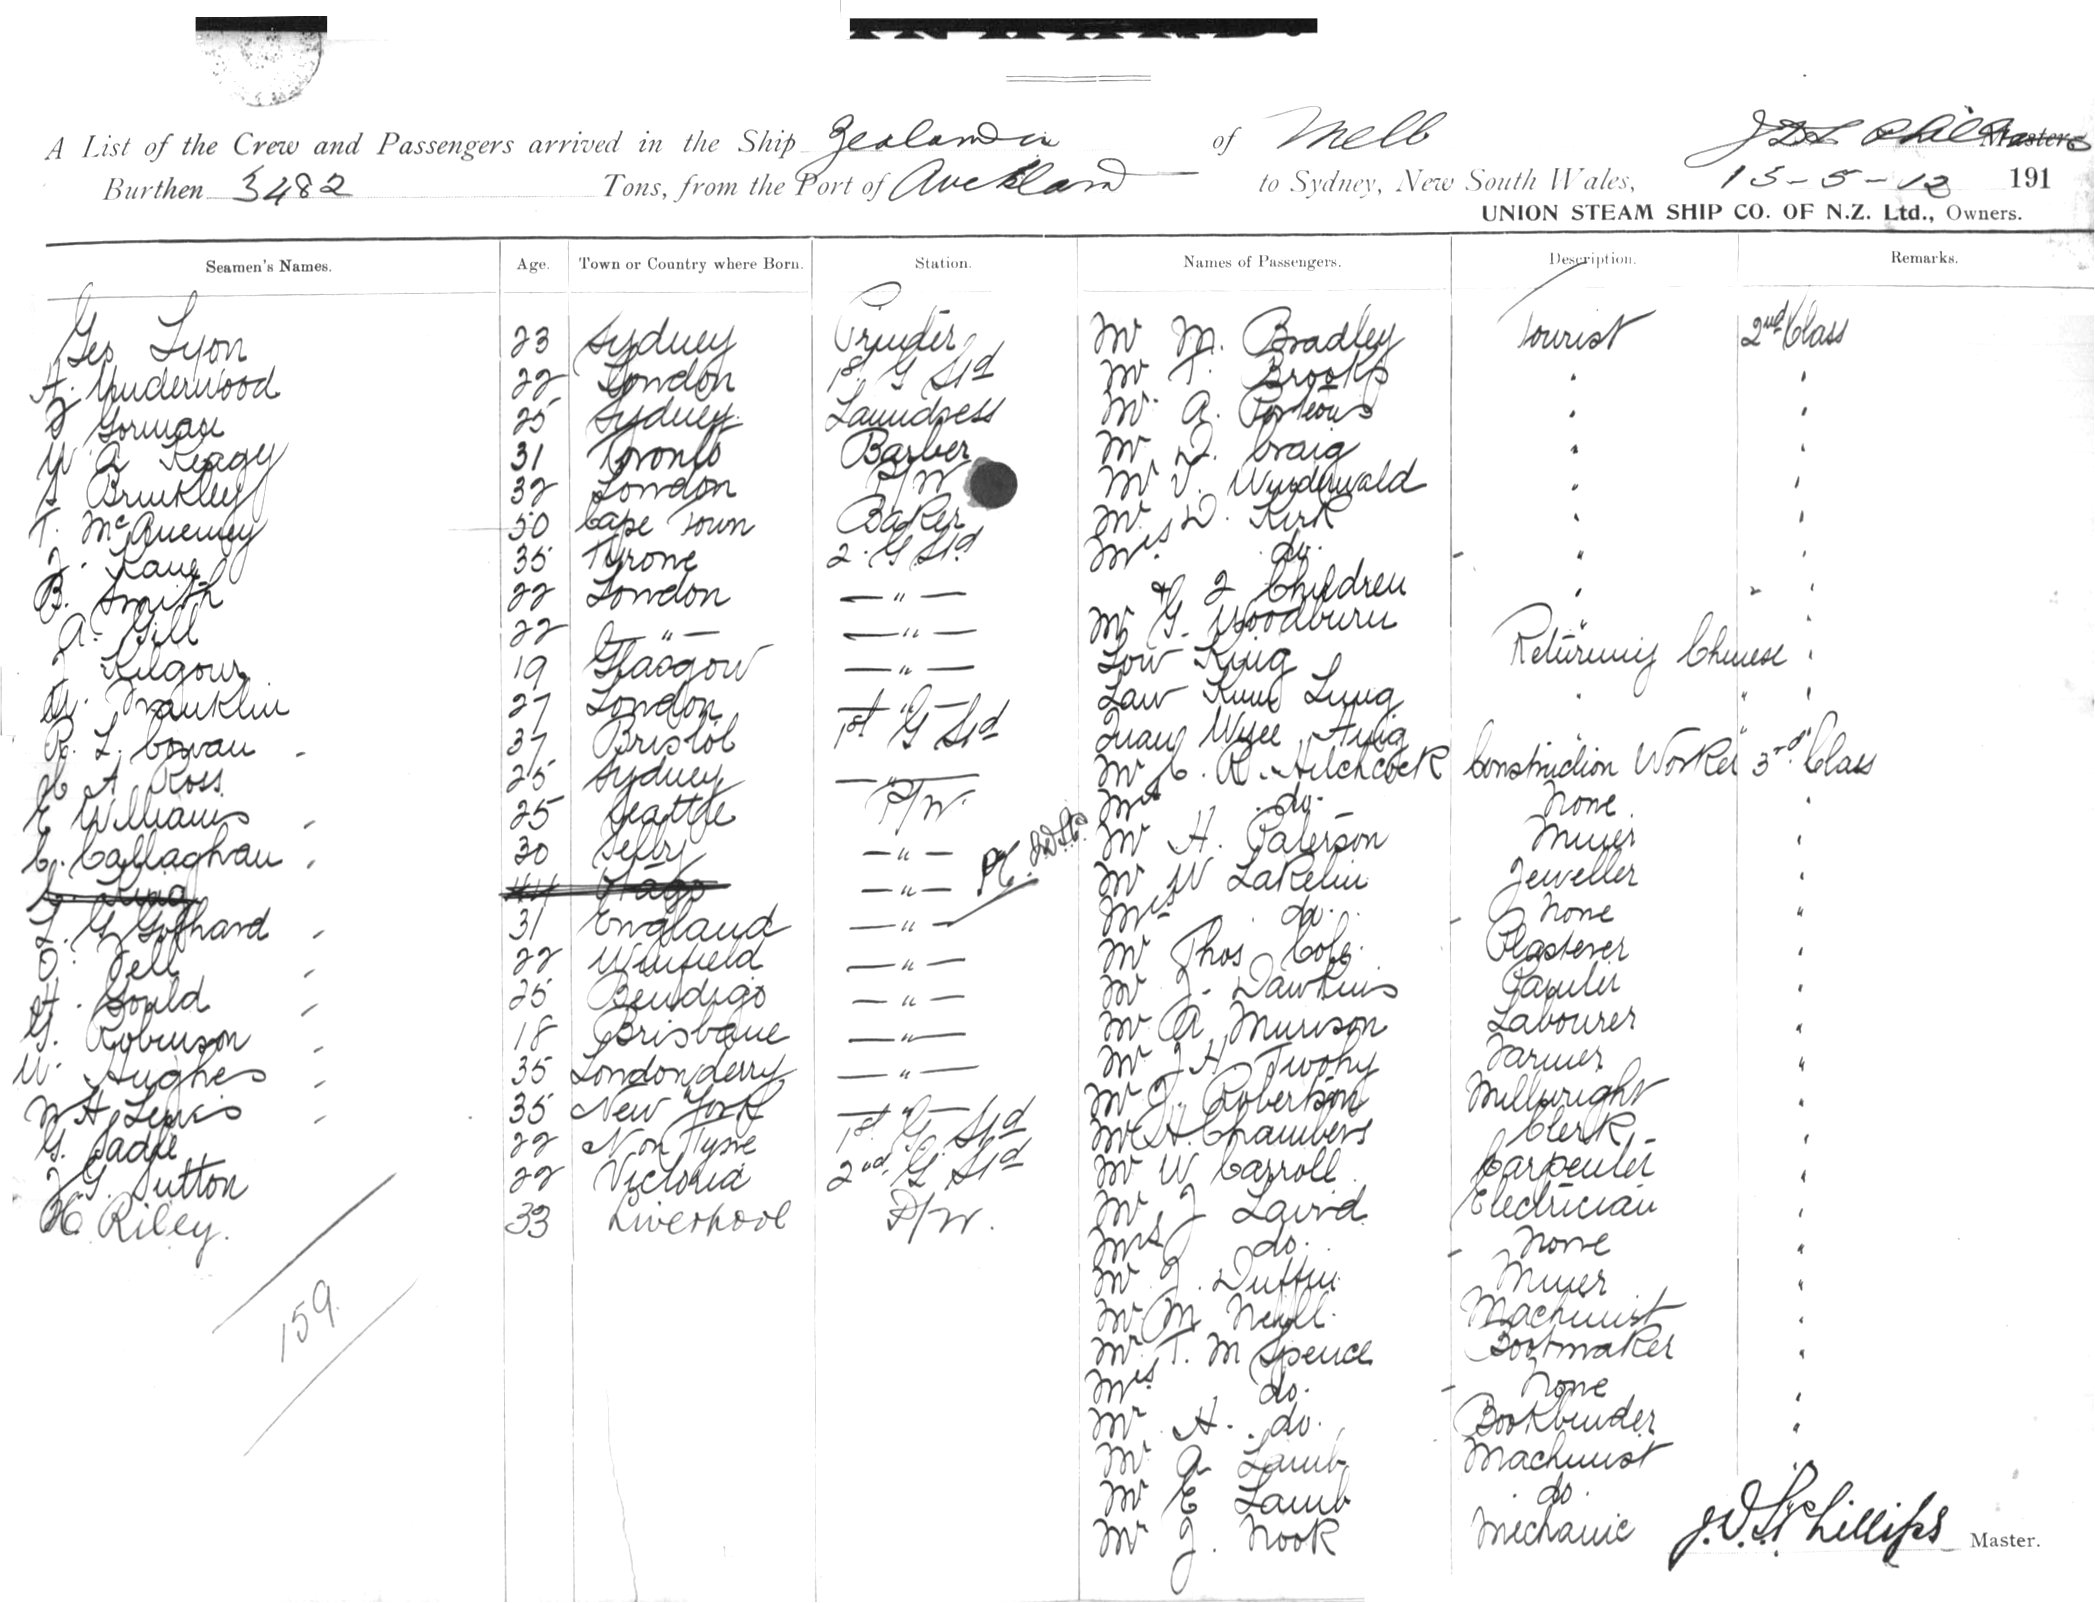 A List of the Crew and Passengers arrived in the Ship Zealandia of Melb Master
Burthen 3482 Tons, from the Port of Auckland to Sydney, New South Wales, 15-5-12 191
UNION STEAM SHIP CO. OF N.Z. Ltd., Owners.
Seamen's Names. Age. Town or Country where Born. Station. Names of Passengers. Description. Remarks.
Geo Lyon 23 Sydney Printer Mr M. Bradley Tourist 2nd Class
A. Underwood 22 London 1st G Std Mr T. Brooks "
J Gorman 25 Sydney Laundress Mr A. Porteous "
W A Keagy 31 Toronto Barber Mr D. Craig "
S Brinkley 32 London P/W Mr V. Wunderwald "
T. McAnemey 50 Cape Town Baker Mr D. Kirk "
J. Kane 35 Tyrone 2. G Std Mrs do. "
B. Smith 22 London — " — & 2 Children "
A. Gill 22 — " — — " — Mr G. Woodburn "
J Kilgour 19 Glasgow — " — Low King Returning Chinese "
M. Franklin 27 London — " — Law Kum Lung " "
R. L. Cowan 37 Bristol 1st G Std Quan Wyee Aing "
H A Ross 25 Sydney — " — Mr C. R. Hitchcock Construction Worker 3rd Class
E Williams 25 Seattle P/W. Mrs do. None "
C. Callaghan 30 Selby — " — Mr H. Paterson Miner "
C. King 44 Otago — " — Mr W Lakelin Jeweller "
L. G Gothard 31 England — " — Mrs do. None "
O. Fell 22 Winfield — " — Mr Thos Cole. Plasterer "
H. Gould 25 Bendigo — " — Mr J. Dawkins Painter "
G. Robinson 18 Brisbane — " — Mr A Murison Labourer "
W. Hughes 35 Londonderry — " — Mr J H Twohy Farmer "
W H Lewis 35 New York — " — Mr J. Robertson Millwright "
G. Eadie 22 N. on Tyne 1st. G. Std Mr H. Chambers Clerk "
J G. Sutton 22 Victoria 2nd. G Std Mr W Carroll Carpenter "
H. Riley. 33 Liverpool P/W. Mr J Laird Electrician "
Mrs do. None "
Mr J. Duffin Miner "
159. Mr M Neill. Machinist "
Mr T. M Spence Bootmaker "
Mrs do. None "
Mr H. do. Bookbinder "
Mr A Lamb Machinist
Mr E Lamb do.
Mr J. Nook Mechanic J.D.S. Phillips Master.